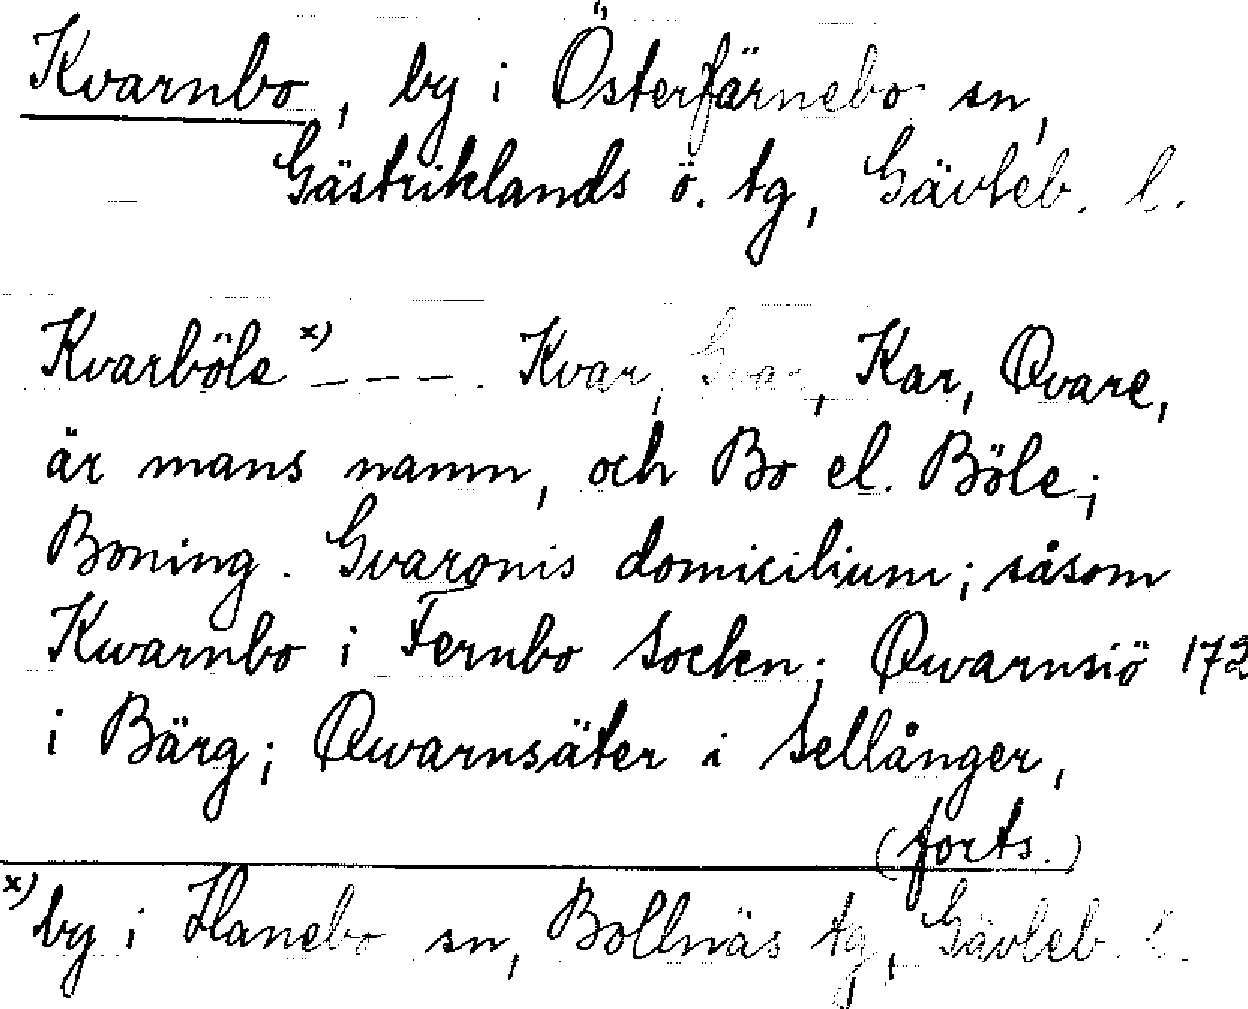 Kvarnbo, by i Österfärnebo sn,
Gästriklands ö. tg, Gävleb. l.
Kvarböle x) _ _ _ _. Kvar, Gvar, Kar, Qvare,
är mans namn, och Bo el. Böle;
Boning. Gvaronis domicilium; såsom
Kwarnbo i Fernbo Sochn; Qwarnsiö 172
i Bärg; Qwarnsäter i Sellånger,
(forts.)
x) by i Hanebo sn, Bollnäs tg, Gävleb. l.